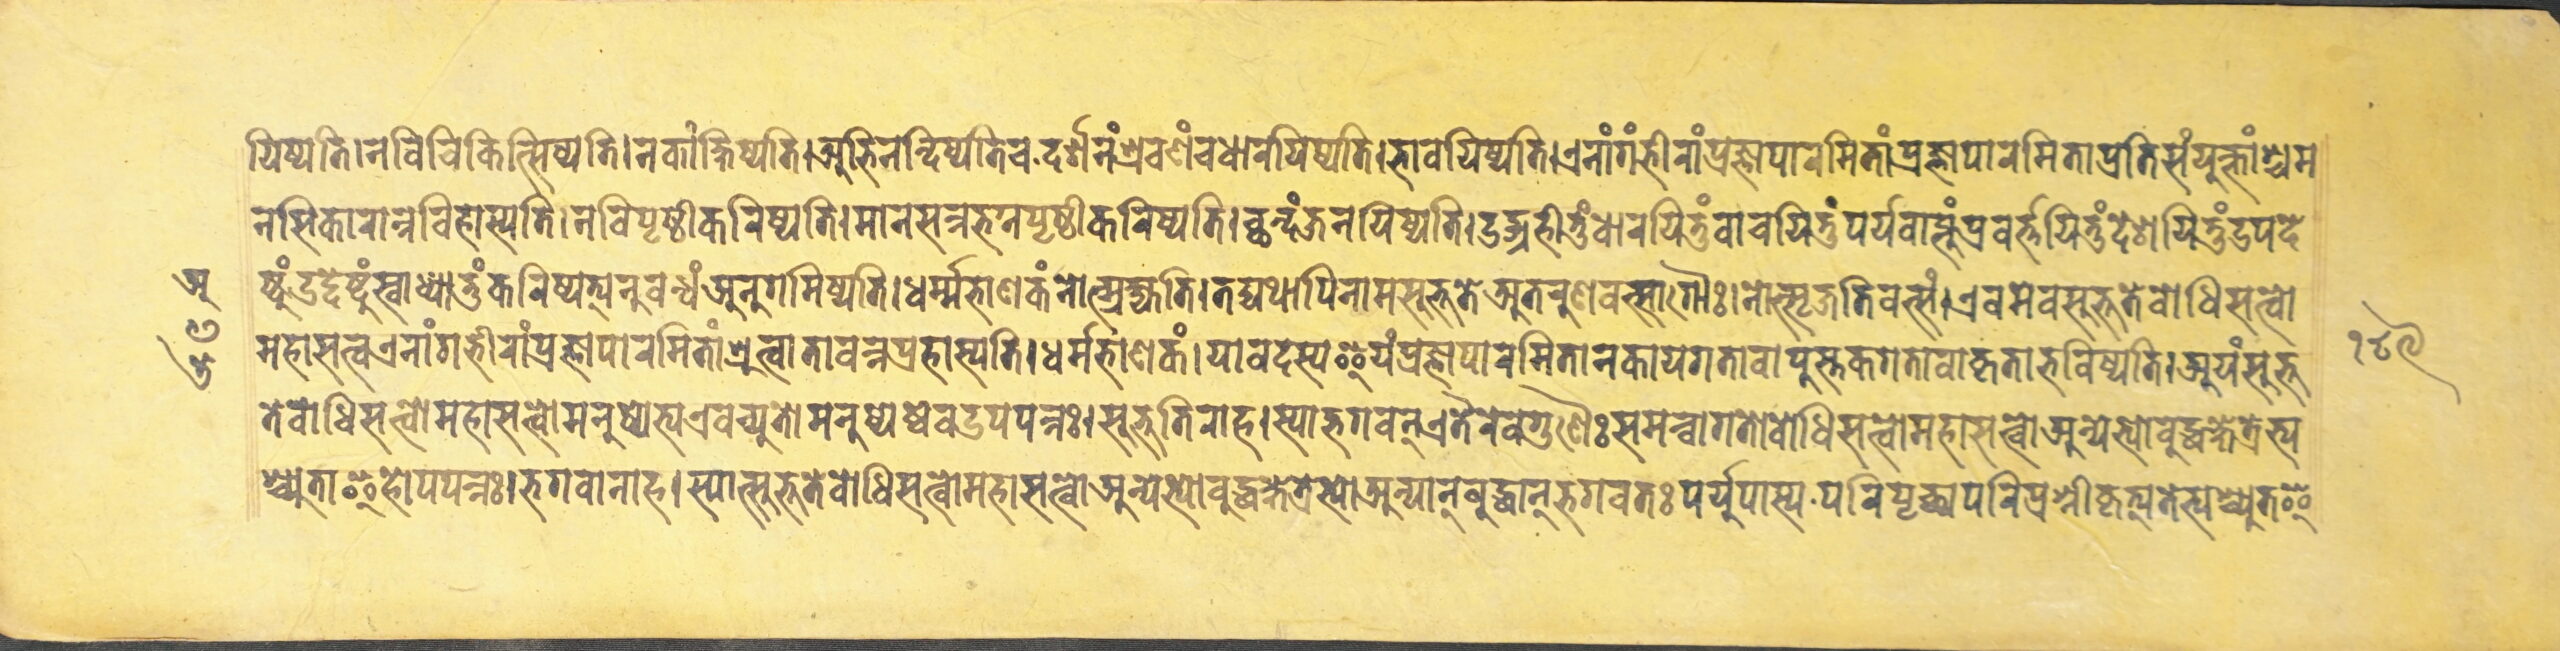 यिष्यति।नविचिकित्सिष्यति।नकांक्षिष्यति।अभिनन्दिष्यतिच.दर्शनंश्रवणंचधारयिष्यति।भावयिष्यति।एनांगंभीरांप्रज्ञापारमितांप्रज्ञापारमिताप्रतिसंयुक्तांश्चम
नसिकारान्नविहास्यति।नविपृष्ठीकरिष्यति।मानसन्न पृष्ठीकरिष्यति।च्छन्दंजनयिष्यति।उद्ग्रहीतुंधारयितुंवाचयितुंपर्यवाप्तुंप्रवर्त्तयितुंदेशयितुंउपदे
ष्टुंउद्देष्टुंस्वाध्यातुंकरिष्यत्यनुबन्धंअनुगमिष्यति।धर्म्मभाणकंनोत्स्रक्ष्यति।तद्यथापिनामसुभूतेअतरुणवत्सागौः।नोत्सृजतिवत्सं।एवमेवसुभूतेबोधिसत्त्वो
महासत्त्वएनांगभीरांप्रज्ञापारमितांश्रुत्वातावन्नप्रहास्यति।धर्मभाणकं।यावदस्यइयंप्रज्ञापारमितानकायगतावापुस्तकगतावाकृताभविष्यति।अयंसुभू
तेबोधिसत्त्वोमहासत्त्वोमनुष्येभ्यएवच्युतोमनुष्येष्वेवउपपन्नः।सुभूतिराह।स्याद्भगवन्एतैरेवगुणैःसमन्वागतोबोधिसत्त्वोमहासत्त्वोअन्येभ्योबुद्धक्षेत्रेभ्य
श्च्युताइहोपपन्नः।भगवानाह।स्यात्सुभूतेबोधिसत्त्वोमहासत्त्वोअन्येभ्योबुद्धक्षेत्रेभ्योअन्यान्बुद्धान्भगवतःपर्युपास्य.परिपृच्छ्यपरिप्रश्नीकृत्यतेभ्यश्च्युतइ
१८९